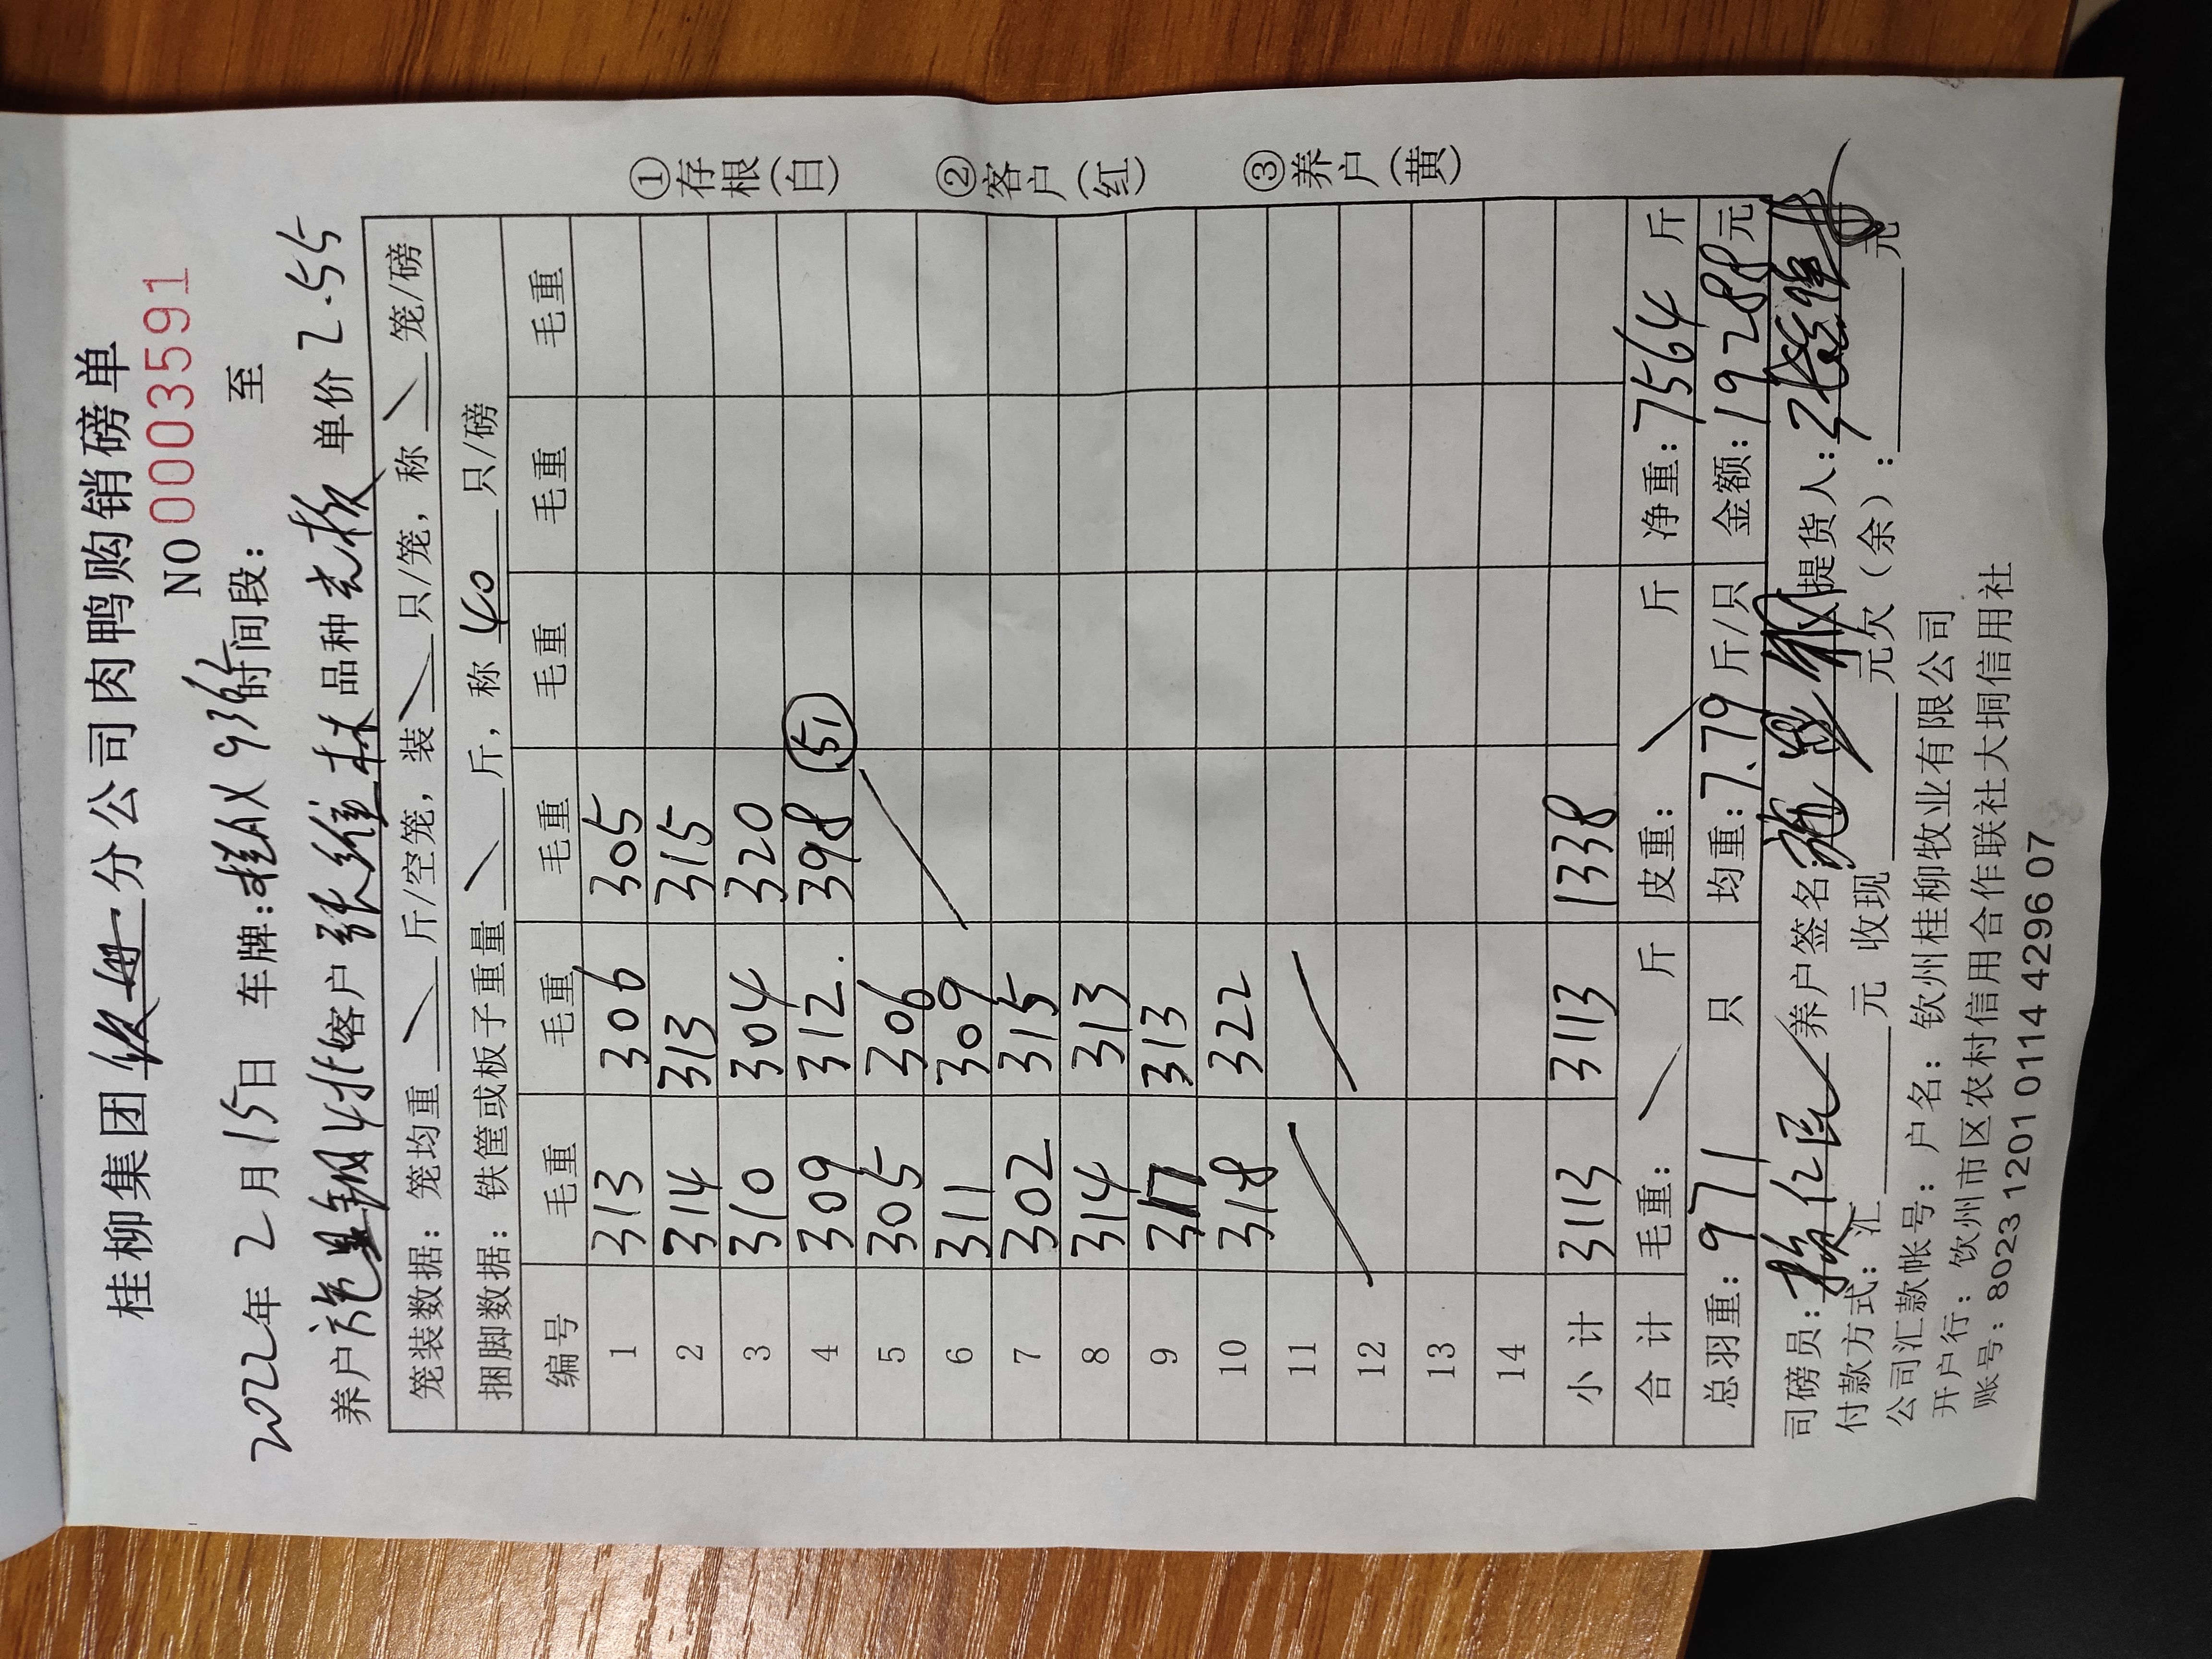 桂柳集团 分公司肉鸭购销磅单
NO 0003591
2022年 2月15日 车牌: 时间段: 至
养户 施显钢 客户 张维林 品种 单价 2.55
笼装数据: 笼均重 \ 斤/空笼, 装 \ 只/笼, 称 \ 笼/磅
捆脚数据: 铁筐或板子重量 \ 斤, 称 40 只/磅
编号 毛重 毛重 毛重 毛重 毛重 毛重
1 313 306 305
2 314 313 315
3 310 304 320
4 309 312. 398 51
5 305 306
6 311 309
7 302 315
8 314 313
9 317 313
10 318 322
11
12
13
14
小计 3113 3113 1338
合计 毛重: \ 斤 皮重: \ 斤 净重: 7564 斤
总羽重: 971 只 均重: 7.79 斤/只 金额: 19288元
司磅员: 养户签名: 提货人:
付款方式: 汇 元 收现 元欠(余): 元
公司汇款帐号: 户名: 钦州桂柳牧业有限公司
开户行: 钦州市区农村信用合作联社大垌信用社
账号: 8023 1201 0114 4296 07
①存根(白) ②客户(红) ③养户(黄)